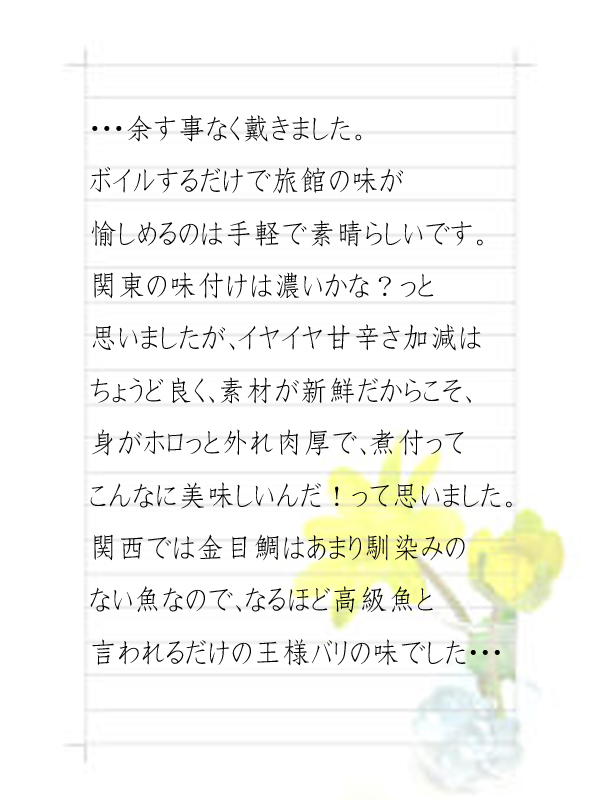 ・・・余す事なく戴きました。
ボイルするだけで旅館の味が
愉しめるのは手軽で素晴らしいです。
関東の味付けは濃いかな？っと
思いましたが、イヤイヤ甘辛さ加減は
ちょうど良く、素材が新鮮だからこそ、
身がホロっと外れ肉厚で、煮付って
こんなに美味しいんだ！って思いました。
関西では金目鯛はあまり馴染みの
ない魚なので、なるほど高級魚と
言われるだけの王様バリの味でした・・・